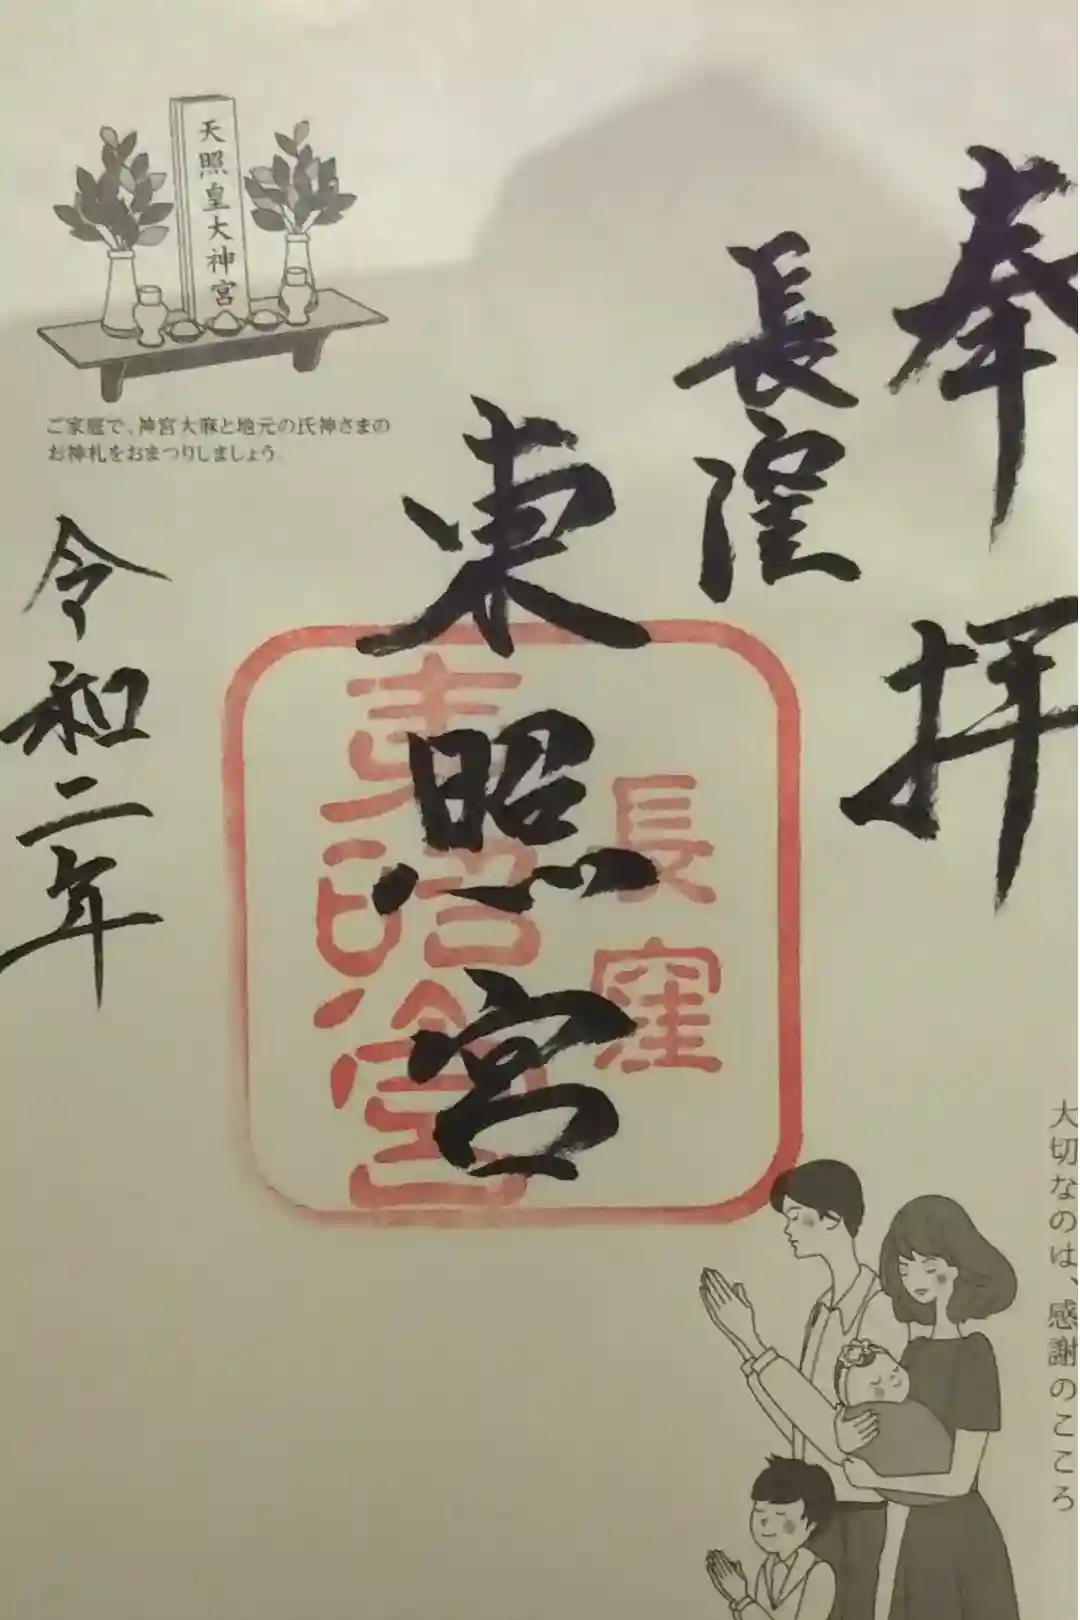 奉拝
長窪
東照宮
東照宮
長窪
令和二年
天照皇大神宮
ご家庭で、神宮大麻と地元の氏神さまの
お神札をおまつりしましょう。
大切なのは、感謝のこころ